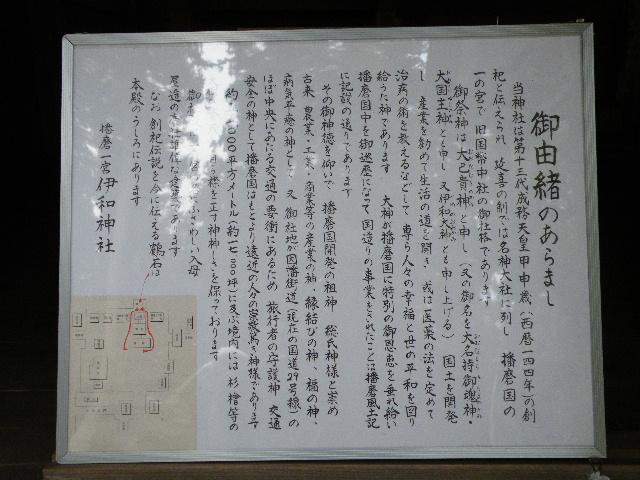 御由緒のあらまし
当神社は第十三代成務天皇甲申歳(西暦一四四年)の創
祀と伝えられ 延喜の制では名神大社に列し 播磨国の
一の宮で 旧国幣中社の御社格であります
御祭神は大己貴神と申し(又の御名を大名持御魂神・
大国主神とも申し 又伊和大神とも申し上げる) 国土を開発
し 産業を勧めて生活の道を開き 或は医薬の法を定めて
治病の術を教えるなどして 専ら人々の幸福と世の平和を図り
給うた神であります 大神が播磨国に特別の御恩恵を垂れ給い
播磨国中を御巡歴になって国造りの事業をされたことは播磨風土記
に記載の通りであります
その御神徳を仰いで 播磨国開発の祖神 総氏神様と崇め
古来 農業・工業・商業等の産業の神・縁結びの神、福の神、
病気平癒の神として 又 御社地が因幡街道(現在の国道29号線)の
ほぼ中央にあたる交通の要衝にあるため 旅行者の守護神 交通
安全の神として播磨国はもとより遠近の人々の崇敬篤き神様であります
平方メートル に及ぶ境内には 杉 檜等の
を正す神神しさを保っております
ふさわしい入母
屋造の であります
なお 創祀伝説を今に伝える鶴石は
本殿のうしろにあります
播磨一宮 伊和神社